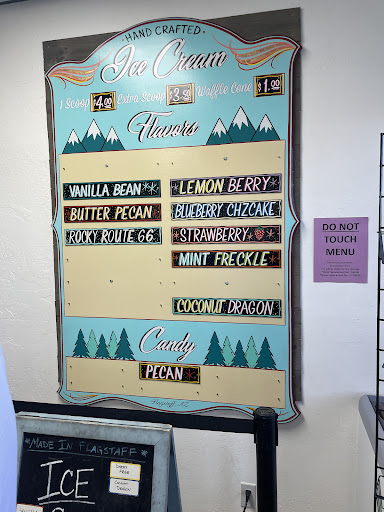 HAND CRAFTED
Ice Cream
1 Scoop $4.00 Extra Scoop $3.50 Waffle Cone $1.00
Flavors
VANILLA BEAN
LEMON BERRY
BUTTER PECAN
BLUEBERRY CHZCAKE
ROCKY ROUTE 66
STRAWBERRY
MINT FRECKLE
COCONUT DRAGON
Candy
PECAN
Flagstaff, AZ
DO NOT
TOUCH
MENU
MADE IN FLAGSTAFF
ICE